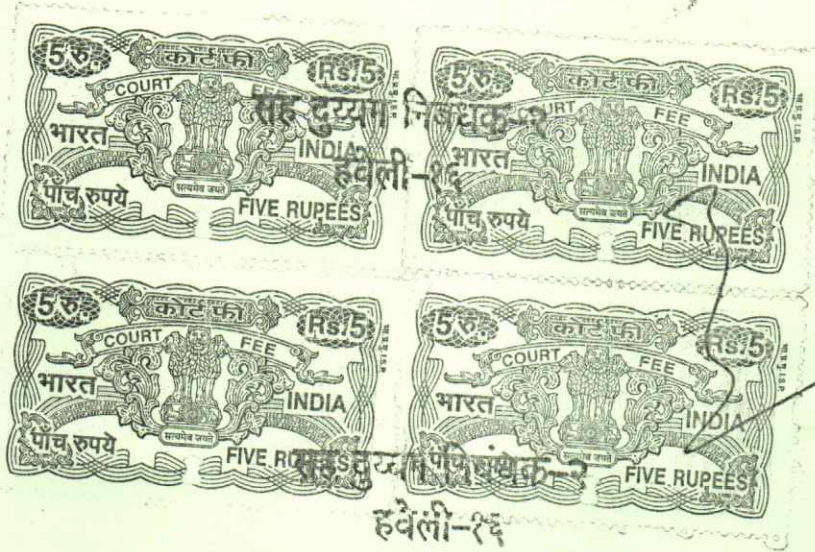 5 रु. कोर्ट फी Rs.5
COURT FEE
भारत INDIA
सत्यमेव जयते
पाँच रुपये FIVE RUPEES
5 रु. कोर्ट फी Rs.5
COURT FEE
भारत INDIA
सत्यमेव जयते
पाँच रुपये FIVE RUPEES
सह दुय्यम निबंधक-२
हवेली-१६
5 रु. कोर्ट फी Rs.5
COURT FEE
भारत INDIA
सत्यमेव जयते
पाँच रुपये FIVE RUPEES
5 रु. कोर्ट फी Rs.5
COURT FEE
भारत INDIA
सत्यमेव जयते
पाँच रुपये FIVE RUPEES
सह दुय्यम निबंधक-२
हवेली-१६